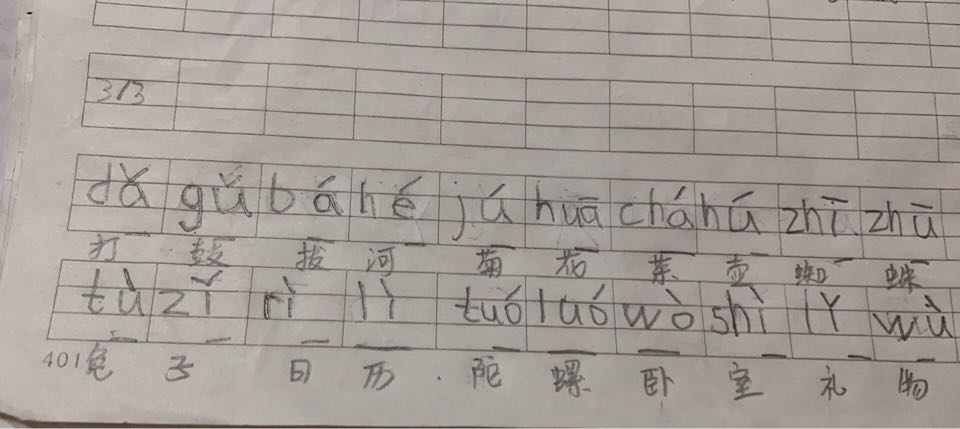 3/3
dǎ gǔ bá hé jú huā chá hú zhī zhū
打 鼓 拔 河 菊 花 茶 壶 蜘 蛛
tù zǐ rì lì tuó luó wò shì lǐ wù
兔 子 日 历 陀 螺 卧 室 礼 物
401